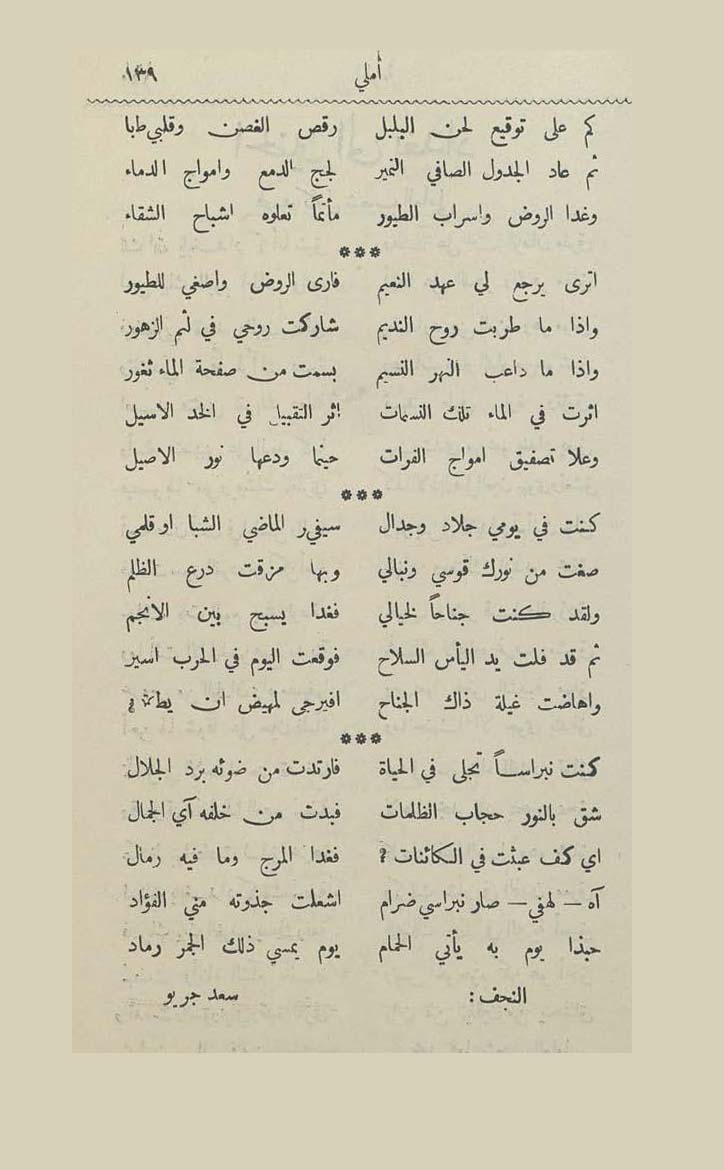 أملي ١٣٩
كم على توقيع لحن البلبل رقص الغصن وقلبي طبا
ثم عاد الجدول الصافي النمير لجج الدمع وامواج الدماء
وغدا الروض واسراب الطيور مأتماً تعلوه اشباح الشقاء
***
اترى يرجع لي عهد النعيم فارى الروض واصغي للطيور
واذا ما طربت روح النديم شاركت روحي في لثم الزهور
واذا ما داعب النهر النسيم بسمت من صفحة الماء ثغور
اثرت في الماء تلك النسمات اثر التقبيل في الخد الاسيل
وعلا تصفيق امواج الفرات حينما ودعها نور الاصيل
***
كنت في يومي جلاد وجدال سيفي الماضي الشبا او قلمي
صغت من نورك قوسي ونبالي وبها مزقت درع الظلم
ولقد كنت جناحاً لخيالي فغدا يسبح بين الانجم
ثم قد فلت يد اليأس السلاح فوقعت اليوم في الحرب اسير
واهاضت غيلة ذاك الجناح افيرجى لمهيض ان
***
كنت نبراساً تجلى في الحياة فارتدت من ضوئه برد الجلال
شق بالنور حجاب الظلمات فبدت من خلفه آي الجمال
اي كف عبثت في الكائنات ? فغدا المرج وما فيه رمال
آه — لهفي — صار نبراسي ضرام اشعلت جذوته مني الفؤاد
حبذا يوم به يأتي الحمام يوم يمسي ذلك الجمر رماد
النجف : سعد جريو